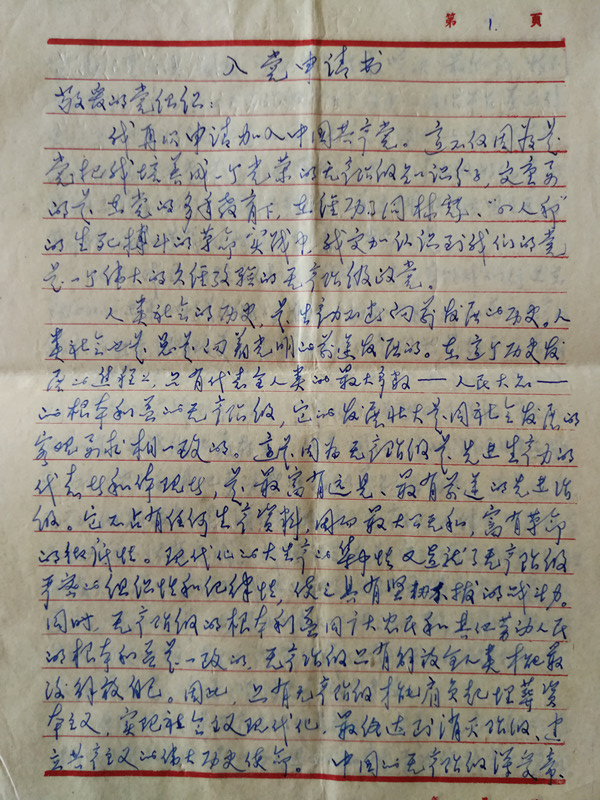 第 1. 页
入党申请书
敬爱的党组织：
我再次申请加入中国共产党。这不仅因为是
党把我培养成一个光荣的无产阶级知识分子，更重要
的是在党的多年教育下，在经历了同林彪、“四人帮”
的生死搏斗的革命实践中，我更加认识到我们的党
是一个伟大的久经考验的无产阶级的党。
人类社会的历史，是生产力不断向前发展的历史。人
类社会也是总是向着光明的前途发展的。在这个历史发
展的进程上，只有代表全人类的最大多数——人民大众——
的根本利益的无产阶级，它的发展壮大是同社会发展的
客观要求相一致的。这是因为无产阶级是先进生产力的
代表者和体现者，是最富有远见、最有前途的先进阶
级。它不占有任何生产资料，因而最大公无私，富有革命
的彻底性。现代化的大生产的集中性又造就了无产阶级
严密的组织性和纪律性，使之具有坚韧不拔的战斗力。
同时，无产阶级的根本利益同广大农民和其他劳动人民
的根本利益是一致的，无产阶级只有解放全人类才能最
后解放自己。因此，只有无产阶级才能肩负起埋葬资
本主义，实现社会主义现代化，最终达到消灭阶级、建
立共产主义的伟大历史使命。中国的无产阶级深受帝、